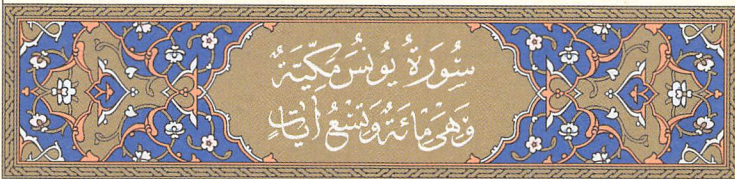 سُورَةُ يُونُسَ مَكِّيَّةٌ
وَهِيَ مِائَةٌ وَتِسْعُ آيَاتٍ